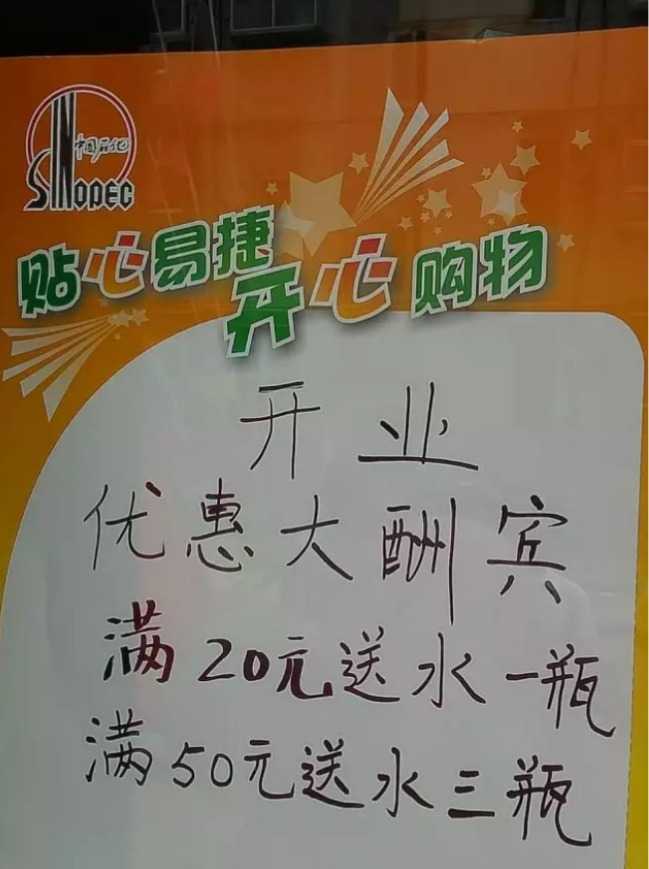 中国石化
SINOPEC
贴心易捷
开心购物
开业
优惠大酬宾
满20元送水一瓶
满50元送水三瓶